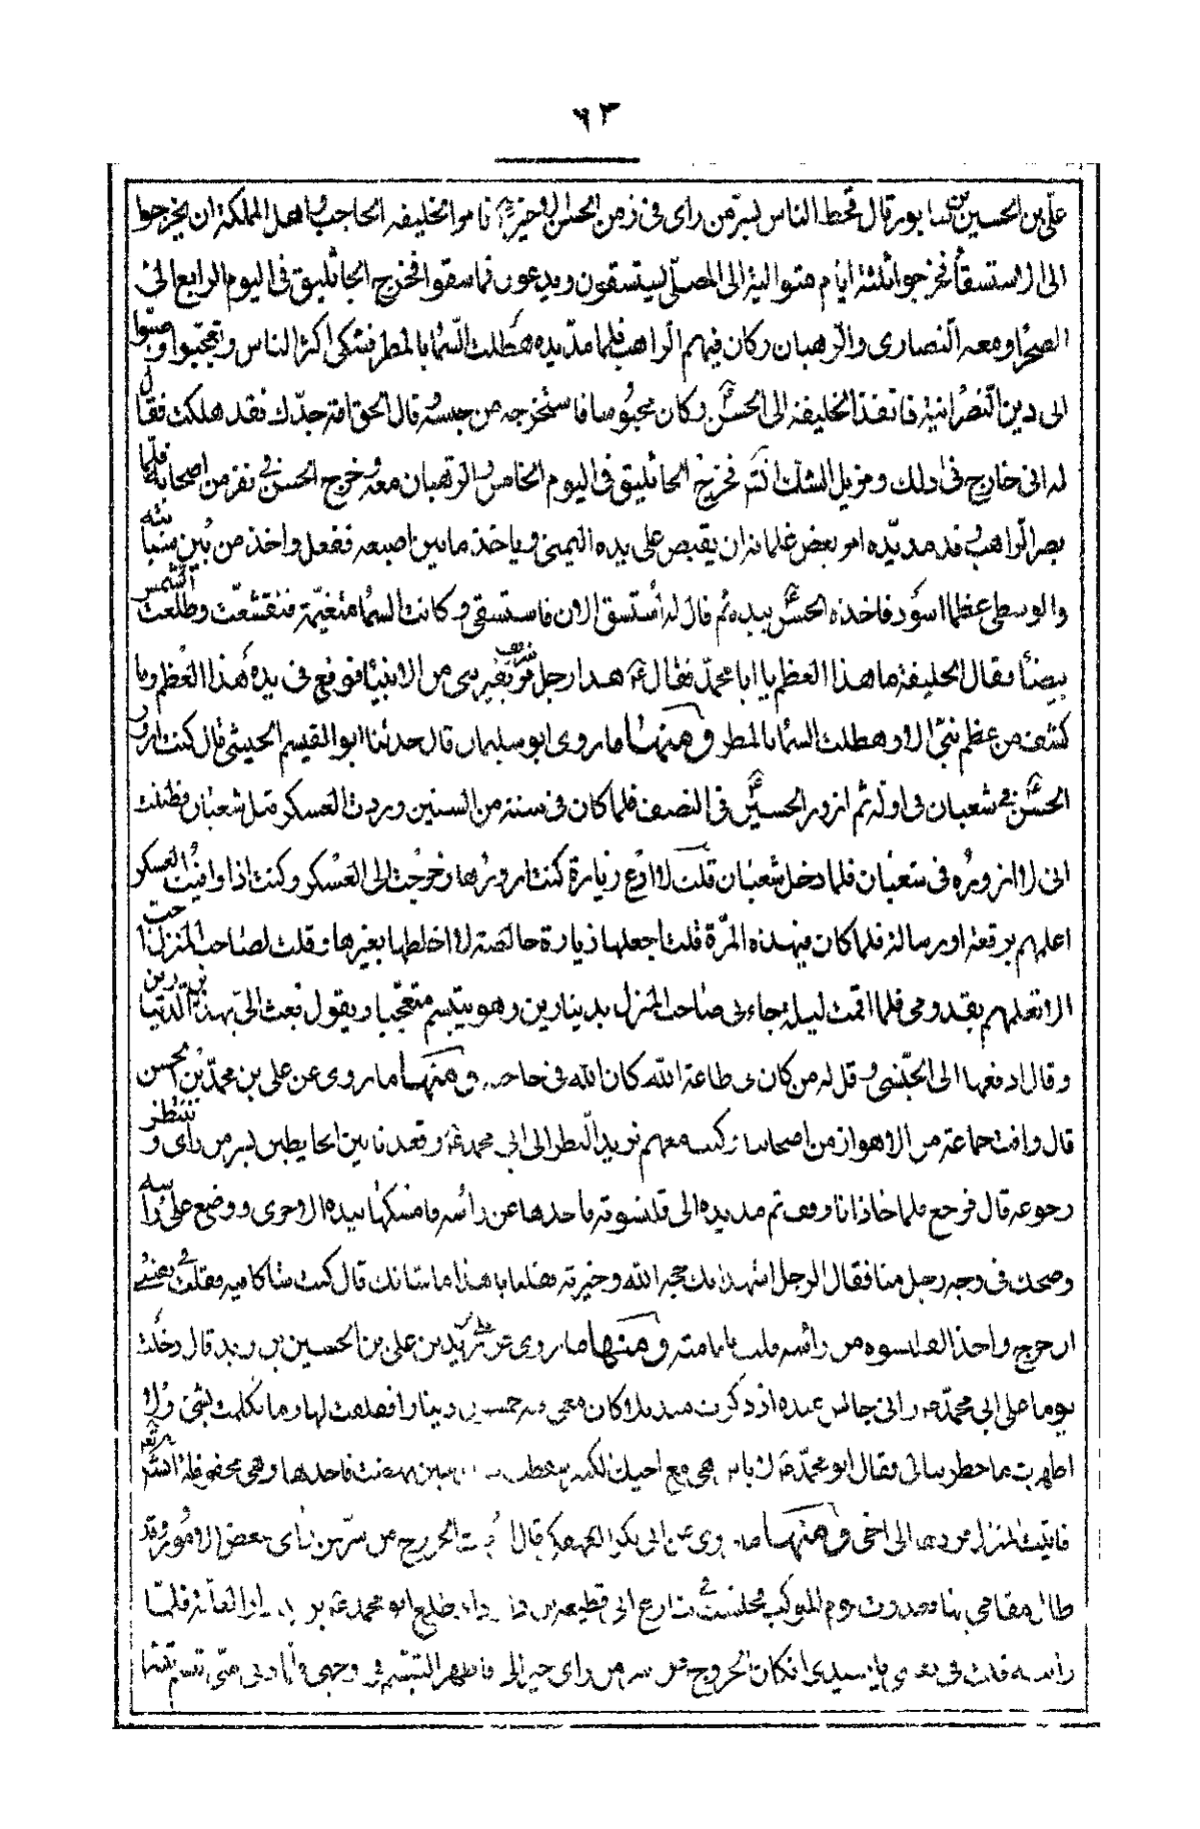 ٦٣
علي بن الحسين بن سابور قال قحط الناس بسر من رأى في زمن الحسن الاخير ع فامر الخليفه الحاجب واهل المملكة ان يخرجوا
الى الاستسقاء فخرجوا ثلثة ايام متوالية الى المصلى ليستسقون ويدعون فما سقوا فخرج الجاثليق في اليوم الرابع الى
الصحراء ومعه النصارى والرهبان وكان فيهم الراهب فلما مد يده هطلت السماء بالمطر فشكى اكثر الناس وتعجبوا وصبوا
الى دين النصرانية فانفذ الخليفة الى الحسن ع وكان محبوسا فاستخرجه من حبسه قال الحق امة جدك فقد هلكت فقال
له اني خارج في ذلك ومزيل الشك انشاء الله فخرج الجاثليق في اليوم الخامس والرهبان معه وخرج الحسن في نفر من اصحابه فلما
بصر الراهب وقد مد يده امر بعض غلمانه ان يقبض على يده اليمنى وياخذ ما بين اصبعه ففعل واخذ من بين سبابته
والوسطى عظما اسود فاخذه الحسن ع بيده ثم قال له استسق الان فاستسقى وكانت السماء متغيمة فتقشعت وطلعت الشمس
بيضاء فقال الخليفة ما هذا العظم يا ابا محمد فقال ع هذا رجل مر بقبر نبي من الانبياء فوقع في يده هذا العظم وما
كشف من عظم نبي الا وهطلت السماء بالمطر ومنها ما روى ابو سليمان قال حدثنا ابو القيسم الحبشي قال كنت ازور
الحسن ع في شعبان في اوله ثم ازور الحسين ع في النصف فلما كان في سنة من السنين وردت العسكر قبل شعبان وظننت
اني لا ازوره في شعبان فلما دخل شعبان قلت لا ادع زيارة كنت ازورها وخرجت الى العسكر وكنت اذا وافيت العسكر
اعلمهم برقعة او برسالة فلما كان في هذه المرة قلت اجعلها زيارة خالصة لا اخلطها بغيرها وقلت لصاحب المنزل احب
الا تعلمهم بقدومي فلما اقمت ليلة جاءني صاحب المنزل بدينارين وهو يتبسم متعجبا ويقول بعث الي بهذين الدينارين
وقال ادفعها الى الحبشي وقل له من كان في طاعة الله كان الله في حاجته ومنها ما روى عن علي بن محمد بن الحسن
قال وافت جماعة من الاهواز من اصحابنا وكنت معهم نريد النظر الى ابي محمد ع وقعدنا بين الحايطين بسر من رأى وننتظر
رجوعه قال فرجع فلما حاذانا وقف ثم مد يده الى قلنسوته فاخذها عن رأسه فامسكها بيده الاخرى ووضع على رأسه
وضحك في وجه رجل منا فقال الرجل اشهد انك حجة الله وخيرته فقلنا يا هذا ما شانك قال كنت شاكا فيه فقلت في نفسي
ان رجع واخذ القلنسوه من رأسه قلت بامامته ومنها ما روى عن زيد بن علي بن الحسين بن زيد قال دخلت
يوما على ابي محمد ع واني جالس عنده اذ ذكرت منديلا كان معي فيه خمسين دينارا فقلقت لها وما تكلمت بشئ ولا
اظهرت ما خطر ببالي فقال ابو محمد ع لا باس هي مع اخيك الكبير سقطت منك حين نهضت فاخذها وهي محفوظة انشاء الله
فاتيت المنزل فردها الى اخي ومنها ما روى عن ابي بكر الفهفكي قال اردت الخروج من سر من رأى لبعض الامور وقد
طال مقامي بها فغدوت يوم الموكب فجلست في شارع ابي قطيعة بن داود اذ طلع ابو محمد ع يريد دار العامة فلما
رأيته قلت في نفسي يا سيدي ان كان الخروج من سر من رأى خير الي فاظهر التبسم في وجهي فلما دنى مني تبسم تبسما